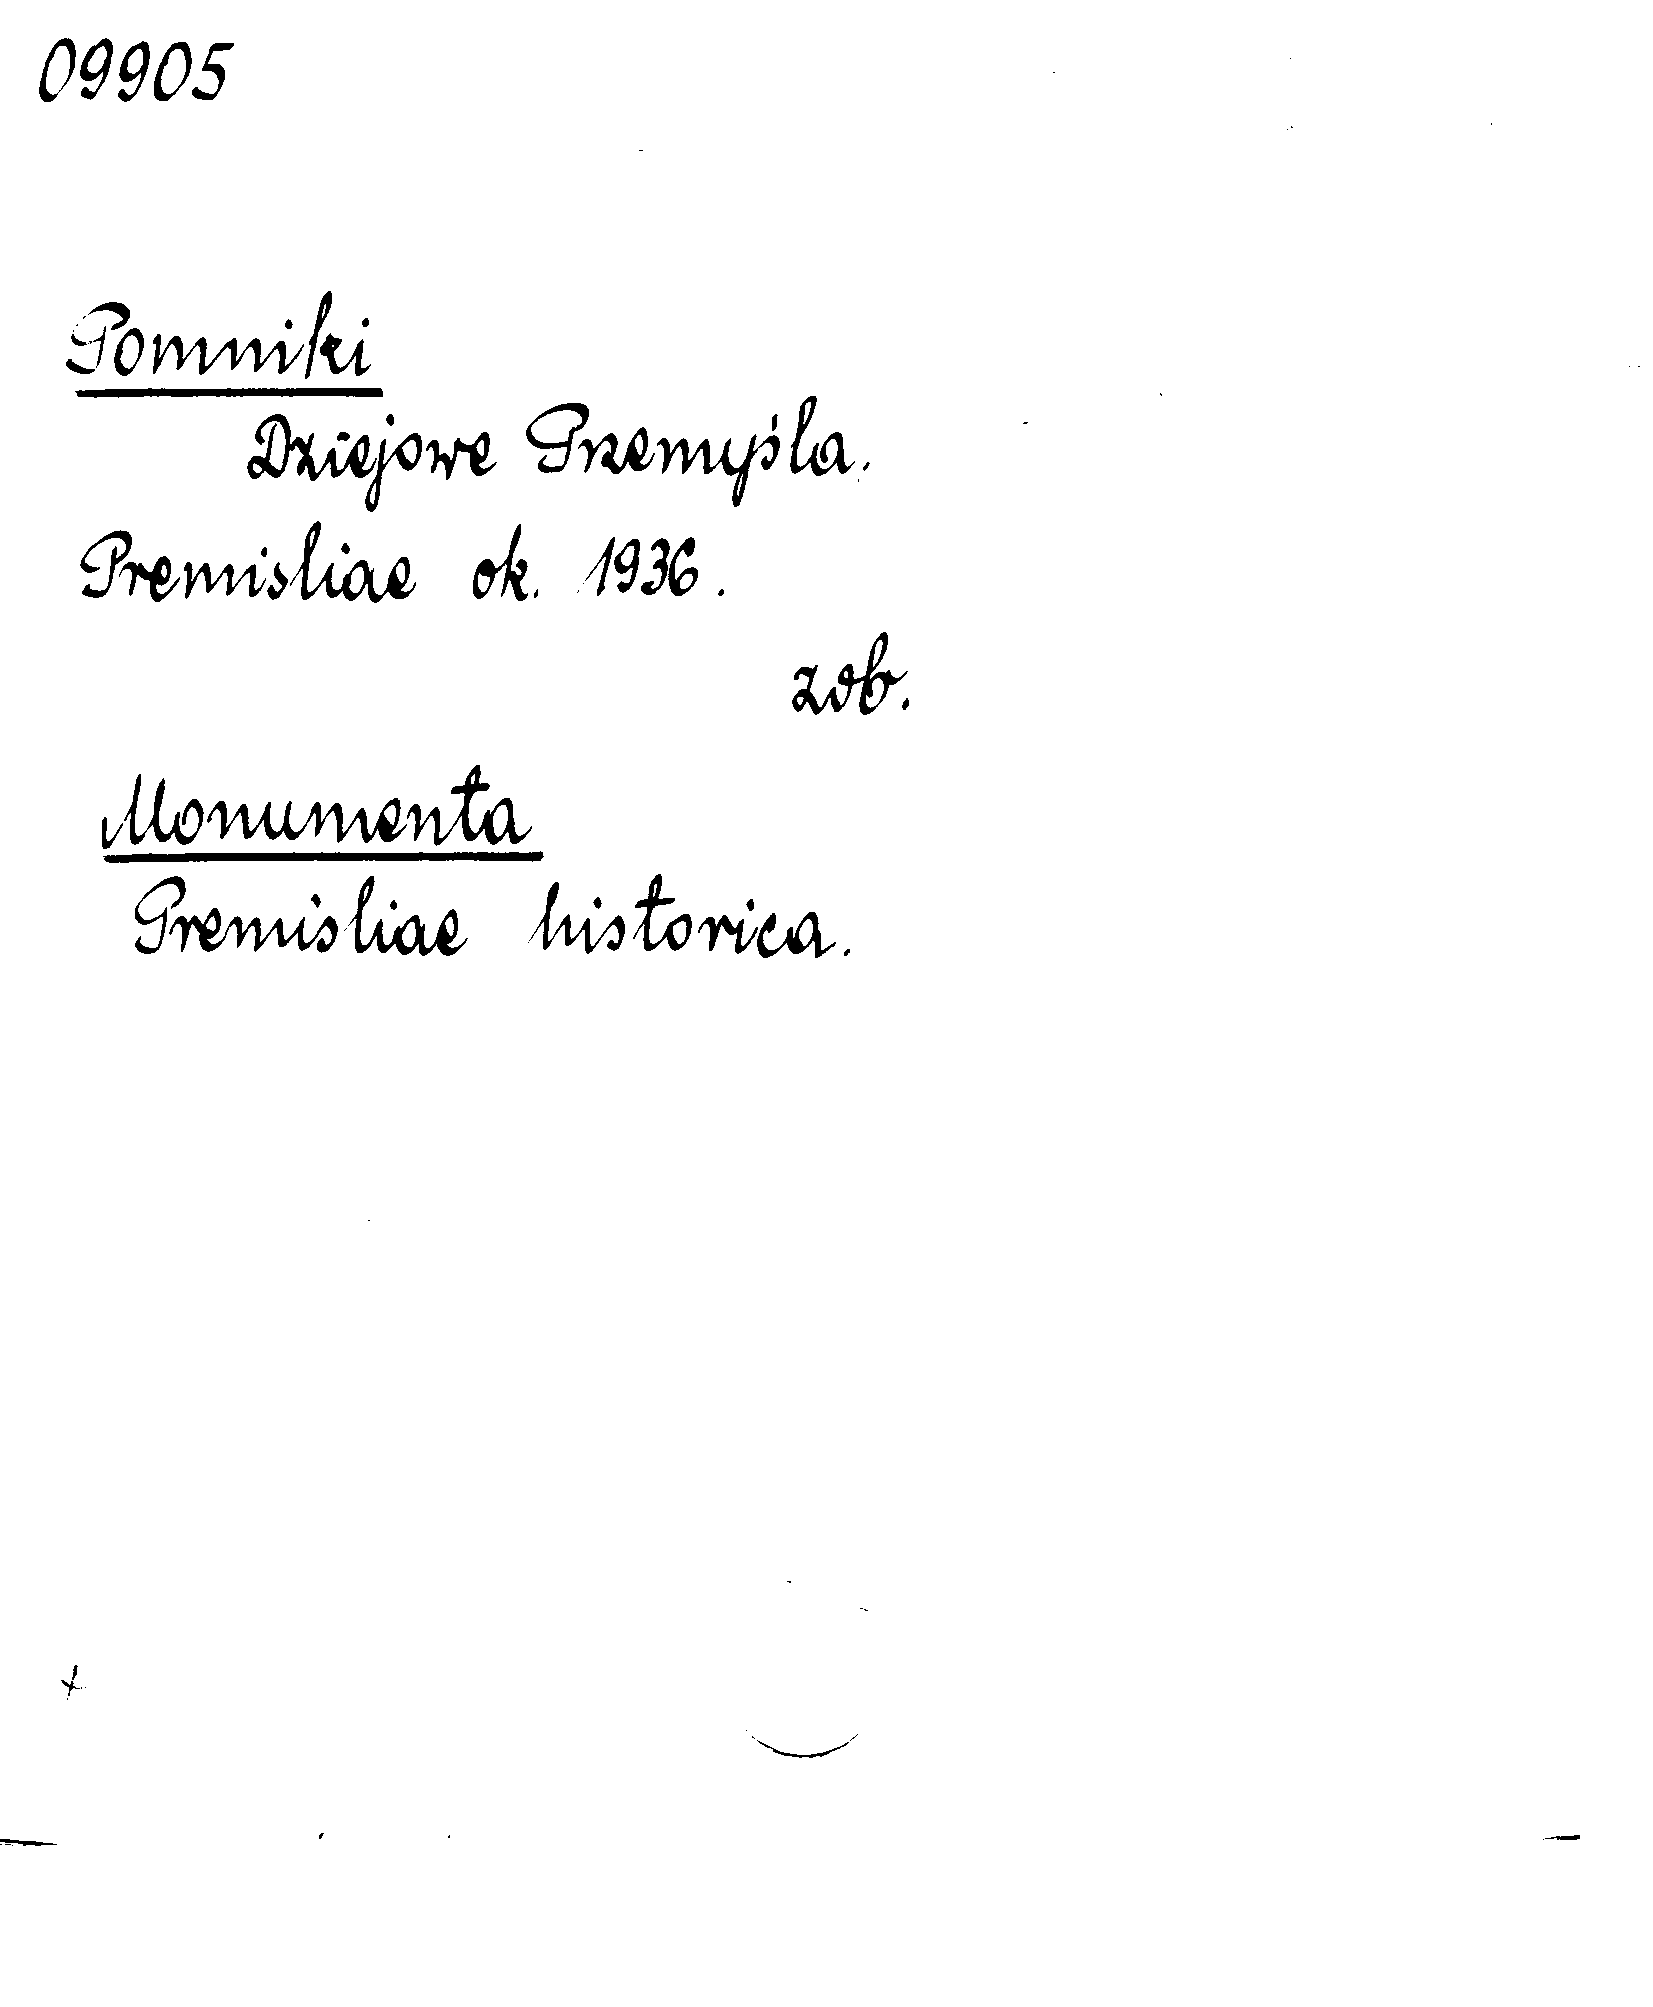 09905
Pomniki
Dziejowe Przemyśla.
Premisliae ok. 1936.
zob.
Monumenta
Premisliae historica.